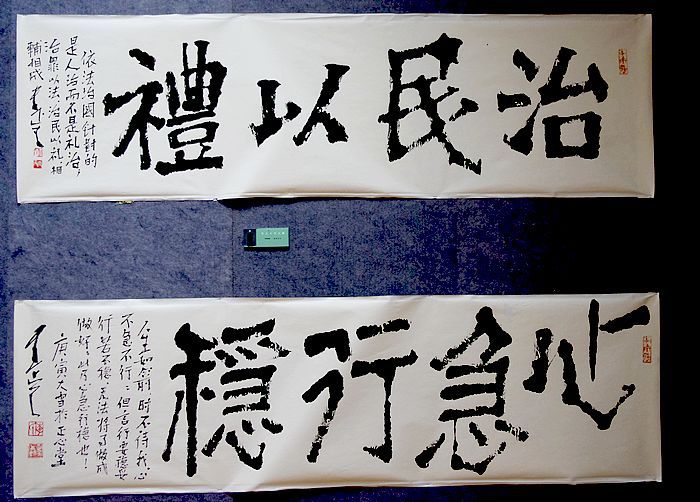 治民以禮
依法治國針對的
是人治而不是礼治，
治罪以法，治民以礼，相
輔相成
心急行穩
人生如 時不待我心
不急不行 但言行要穩妥
行若不穩 無法将事做成
做好，此乃心急行穩也！
庚寅大雪於正心堂